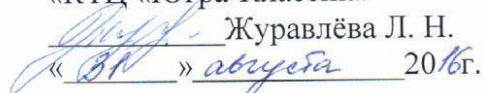 «КТЦ «Югра-Классик»
Журавлёва Л. Н.
« 31 » августа 2016г.